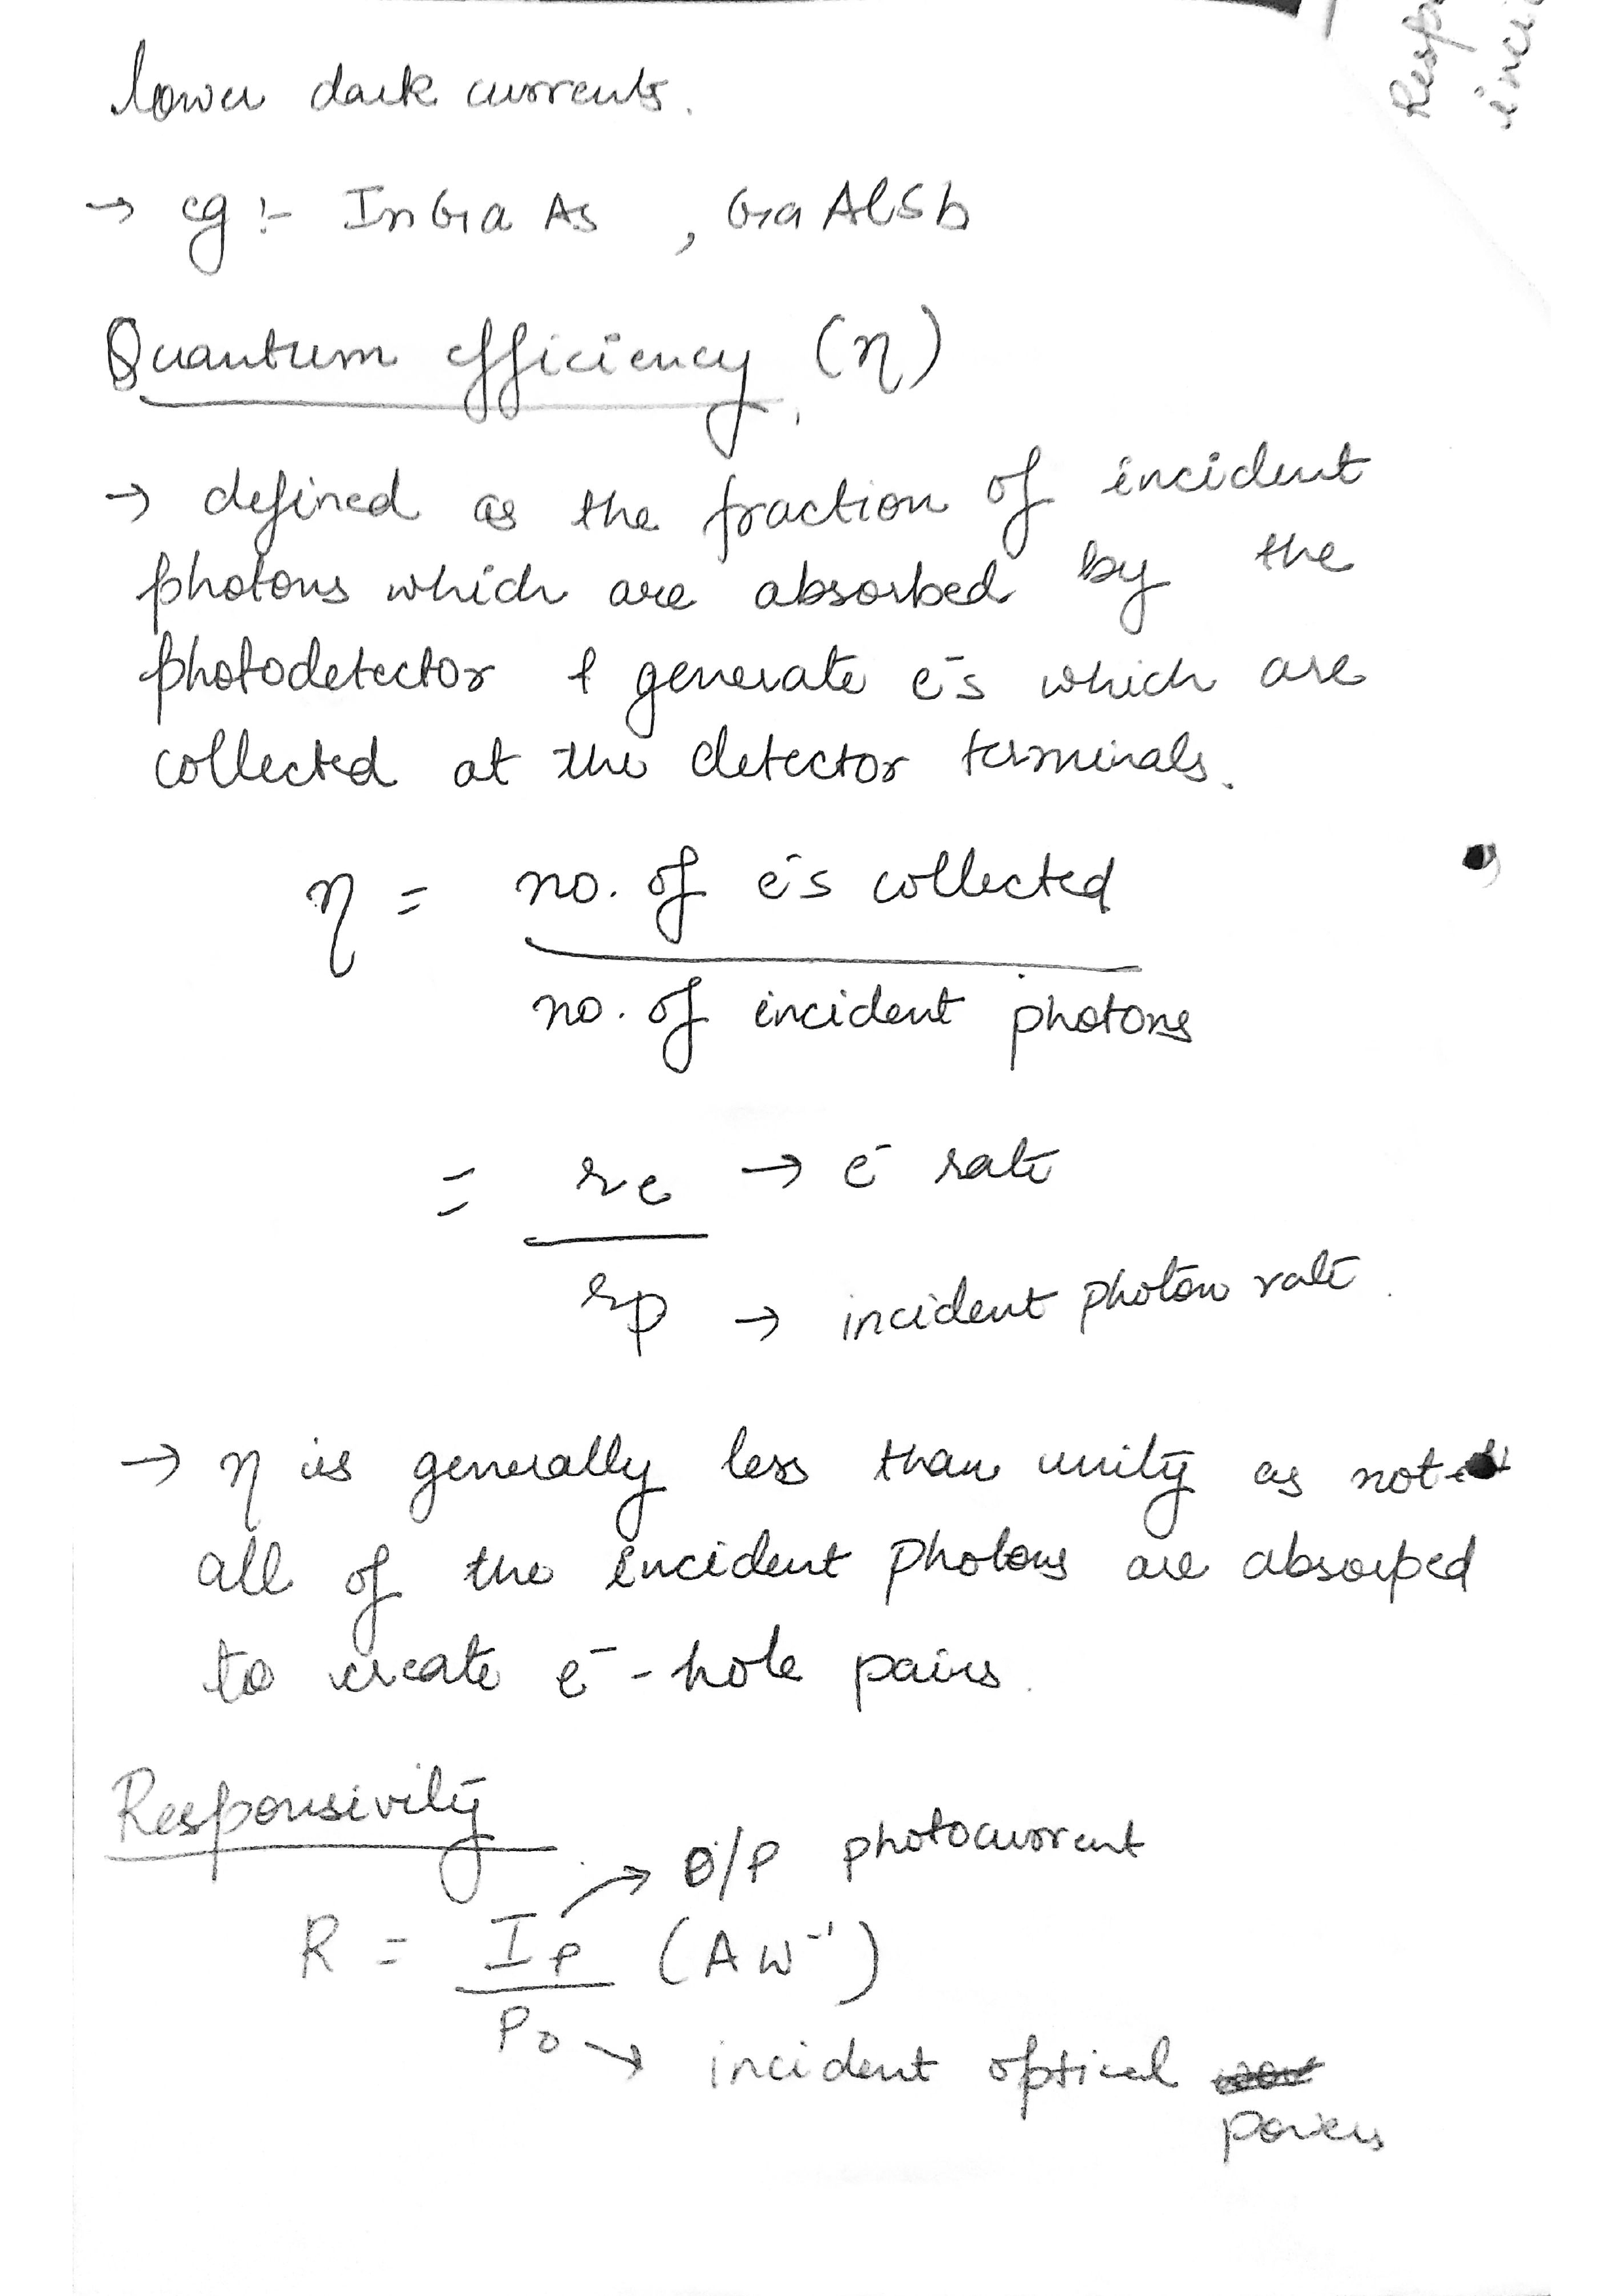 lower dark currents.
→ eg:- InGaAs, GaAlSb
Quantum efficiency (η)
→ defined as the fraction of incident
photons which are absorbed by the
photodetector & generate e⁻s which are
collected at the detector terminals.
η = no. of e⁻s collected
no. of incident photons
= re → e⁻ rate
rp → incident photon rate.
→ η is generally less than unity as not
all of the incident photons are absorped
to create e⁻-hole pairs.
Responsivity
→ O/P photocurrent
R = Ip (AW⁻¹)
Po → incident optical
power